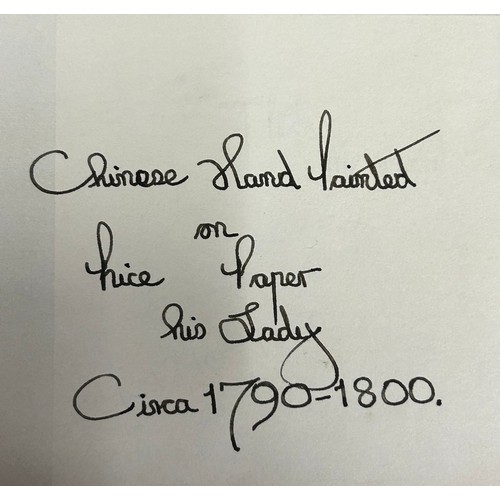 Chinese Hand Painted
on
Rice Paper
his Lady
Circa 1790-1800.